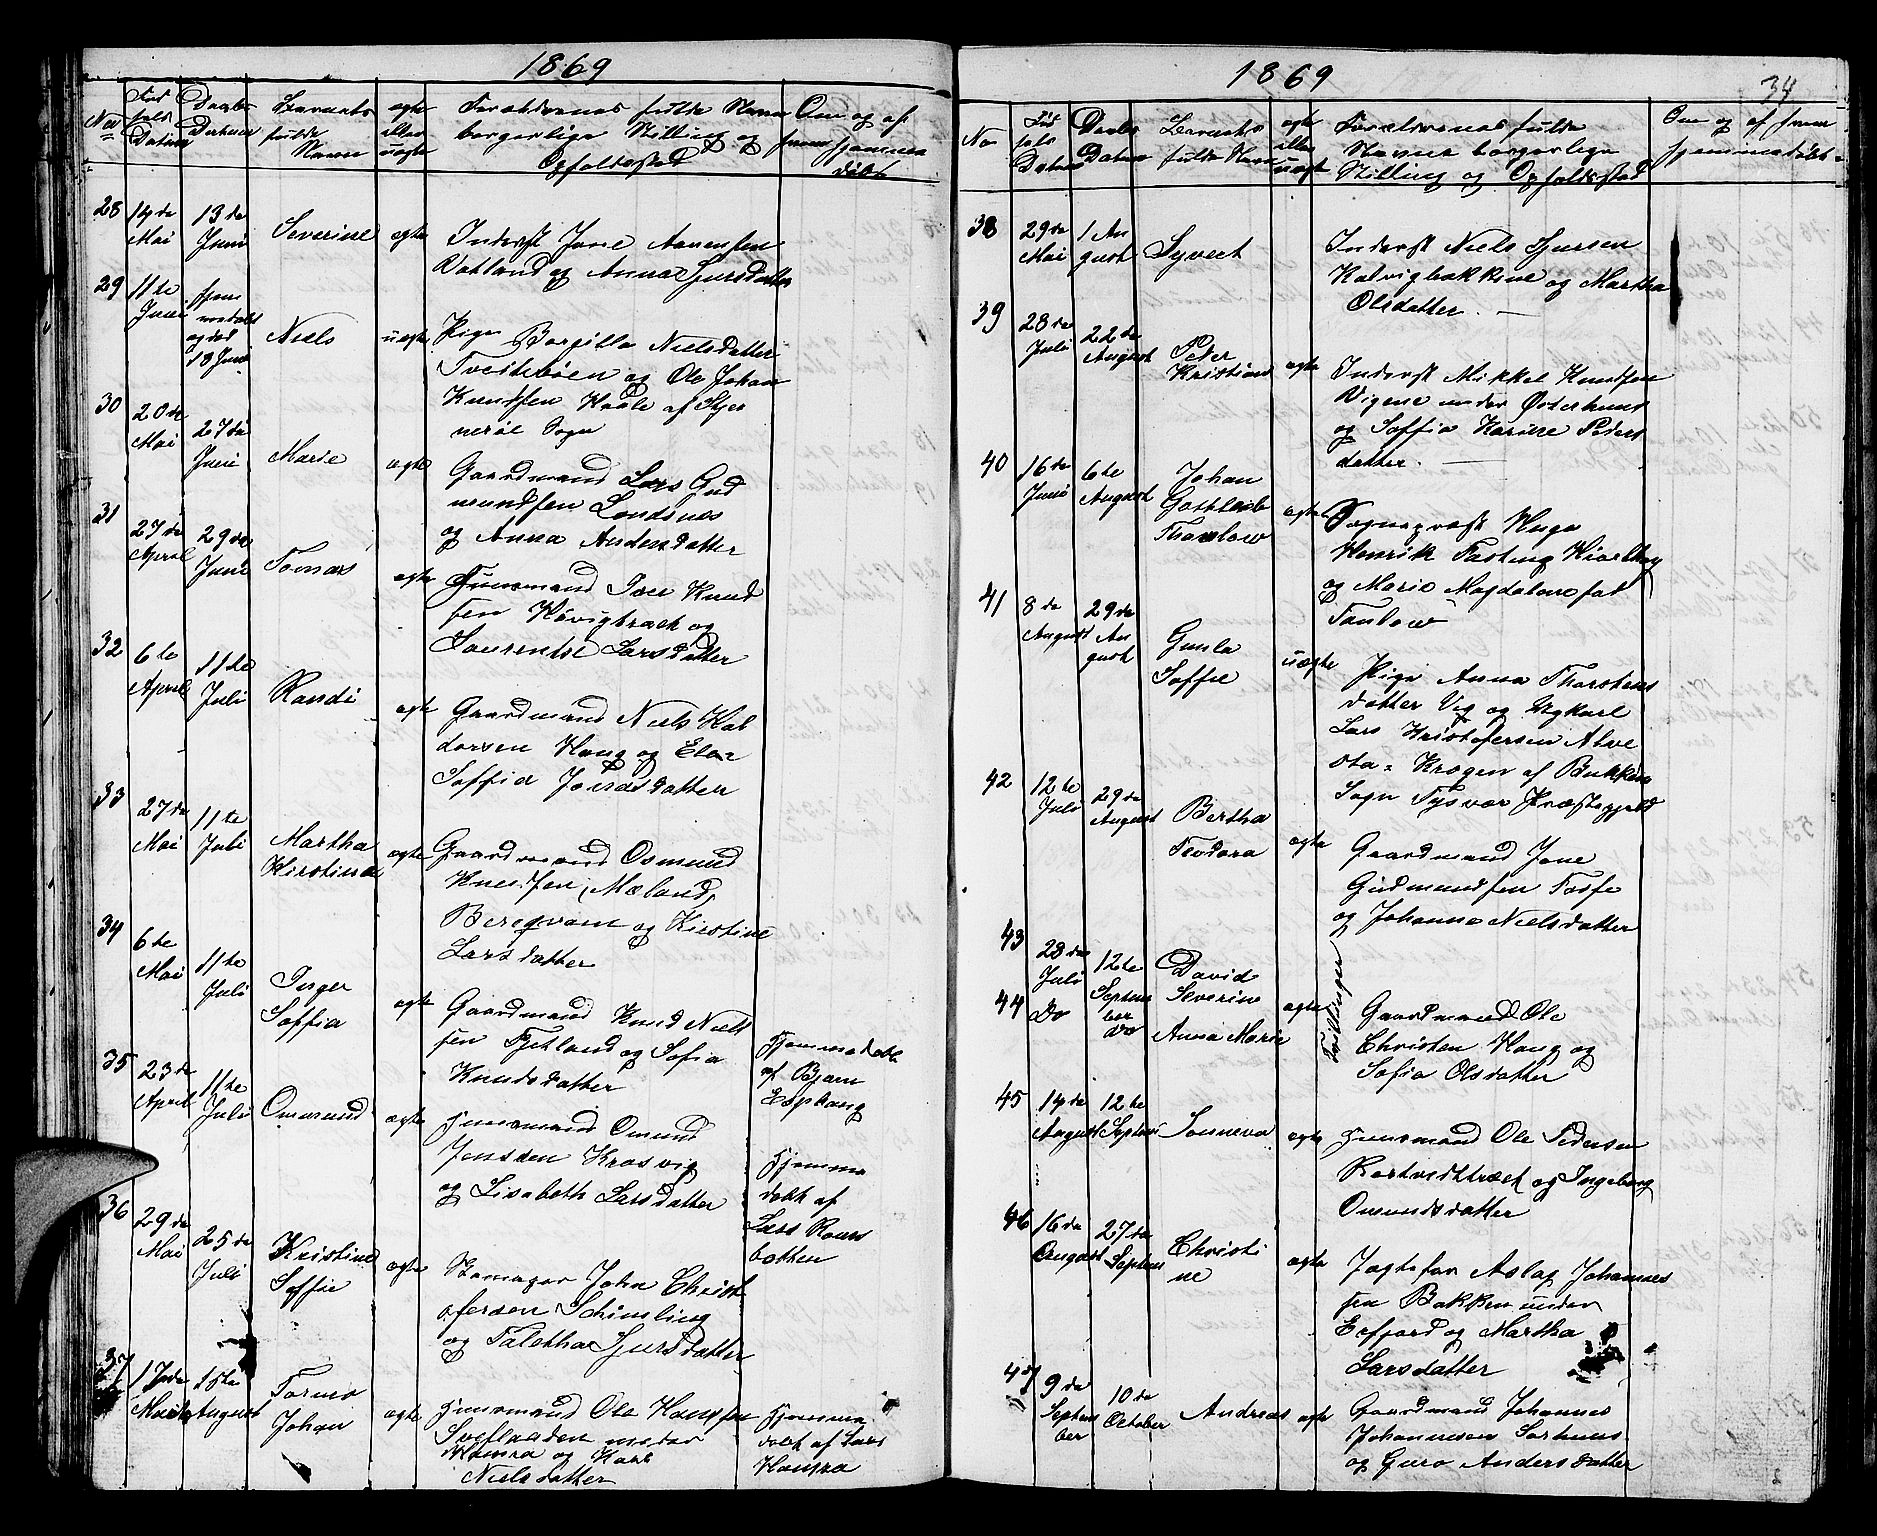 1869
No
Fød
sels
Datum
Daabs
Datum
Barnets
fulde
Navn
ægte
eller
uægte
Forældrenes fulde Navn
borgerlige Stilling og
Opholdsted
Om og af
hvem hjemme
døbt
28
14de
Mai
13de
Juni
Severine
ægte
Inderst Jone Aanensen
Vatland og Anna Sjursdatter
29
11te
Juni
hjem
medøbt
og død
13 Juni
Niels
uægte
Pige Borgilla Nielsdatter
Tveitebøen og Ole Johan
Knudsen Hoale af Stjer
nerøe Sogn
30
20de
Mai
27de
Juni
Marie
ægte
Gaardmand Lars Gud
mundsen Landsnes
og Anna Andersdatter
31
27de
April
29de
Juni
Tomas
ægte
Huusmand Iver Knud
sen Høvigtræet og
Laurentse Larsdatter
32
6te
April
11te
Juli
Randi
ægte
Gaardmand Niels Hal
dorsen Haug og Elen
Soffia Jonasdatter
33
27de
Mai
11te
Juli
Martha
Kirstina
ægte
Gaardmand Osmund
Knudsen Mæland,
Bergqvam og Kirstine
Larsdatter
34
6te
Mai
11te
Juli
Inger
Soffia
ægte
Gaardmand Knud Niels
sen Fjetland og Sofia
Knudsdatter
Hjemmedøbt
af Bjørn
Eophaug
35
23de
April
11te
Juli
Ommund
ægte
Huusmand Omund
Jonsden Krosvig
og Lisabeth Larsdatter
Hjemme
døbt af
Lars Roms
botten
36
29de
Mai
25de
Juli
Kristine
Soffie
ægte
Skomager John Christ
ofersen Schimling
og Taletha Sjursdatter
37
17de
Marts
15te
August
Tormo
Johan
ægte
Huusmand Ole Hansen
Sveflaaden under
Hamra og Kari
Nielsdatter
Hjemme
døbt af Lars
Hamra
1869
34
No
Fød
sels
Datum
Daabs
Datum
Barnets
fulde Navn
ægte
eller
uægte
Forældrenes fulde
Navne borgerlige
Stilling og Opholdssted
Om og af hvem
hjemmedøbt
38
29de
Mai
1 Au
gust
Syvert
Inderst Niels Sjursen
Kalvigbakkene og Martha
Olsdatter.
39
28de
Juli
22de
August
Peder
Kristian
ægte
Inderst Mikkel Knudsen
Vigene under Østerhuus
og Soffia Karine Peders
datter.
40
16de
Juni
6te
August
Johan
Gottleib
Thaulow
ægte
Sognepræst Hugo
Henrik Fasting Hiorthøy
og Marie Magdalene fød
Taulow
41
8de
August
29de
Au
gust
Gunla
Soffie
uægte
Pige Anna Thorstens
datter Vig og Ungkarl
Lars Kristofersen Alve
sta= Krogen af Bukken
Sogn Tysvær Præstegjeld
42
12te
Juli
29de
August
Bertha
Teodora
ægte
Gaardmand Jone
Gudmundsen Tosse
og Johanna Nielsdatter
43
28de
Juli
12te
Septem
ber
David
Severin
44
Do
Do
Anna Marie
ægte
Tvillinger
Gaardmand Ole
Christen Haug og
Sofia Olsdatter
45
14de
August
12te
Septem
Sonneva
ægte
Huusmand Ole Pedersen
Rørtvedttræet og Ingeborg
Omundsdatter
46
16de
August
27de
Septem
Christi
ne
ægte
Jægtefør Aslag Johannes
sen Bakken under
Erfjord og Martha
Larsdatter
47
9de
Septem
ber
10de
October
Andreas
ægte
Gaardmand Johannes
Johannesen Sørhuus
og Guro Andersdatter